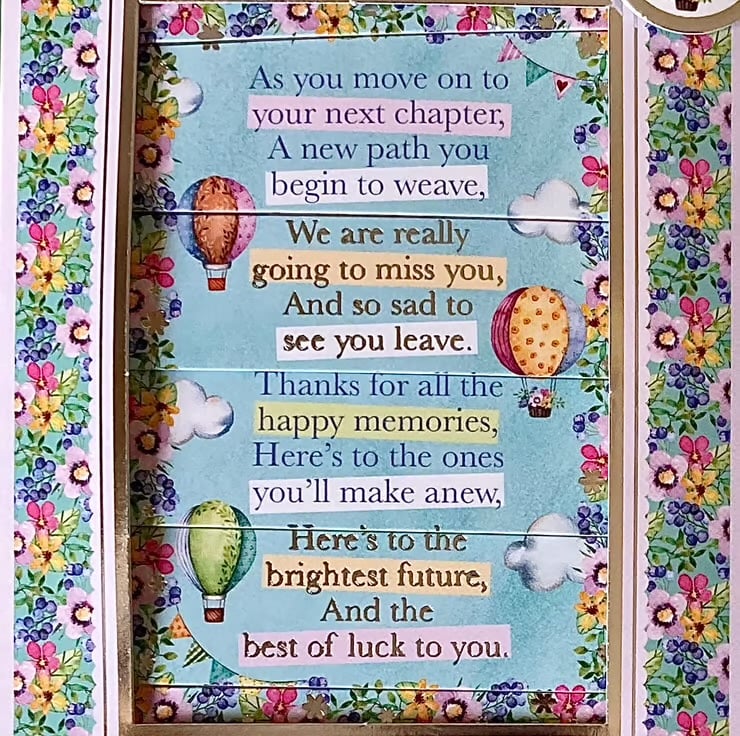 As you move on to
your next chapter,
A new path you
begin to weave,
We are really
going to miss you,
And so sad to
see you leave.
Thanks for all the
happy memories,
Here's to the ones
you'll make anew,
Here's to the
brightest future,
And the
best of luck to you.